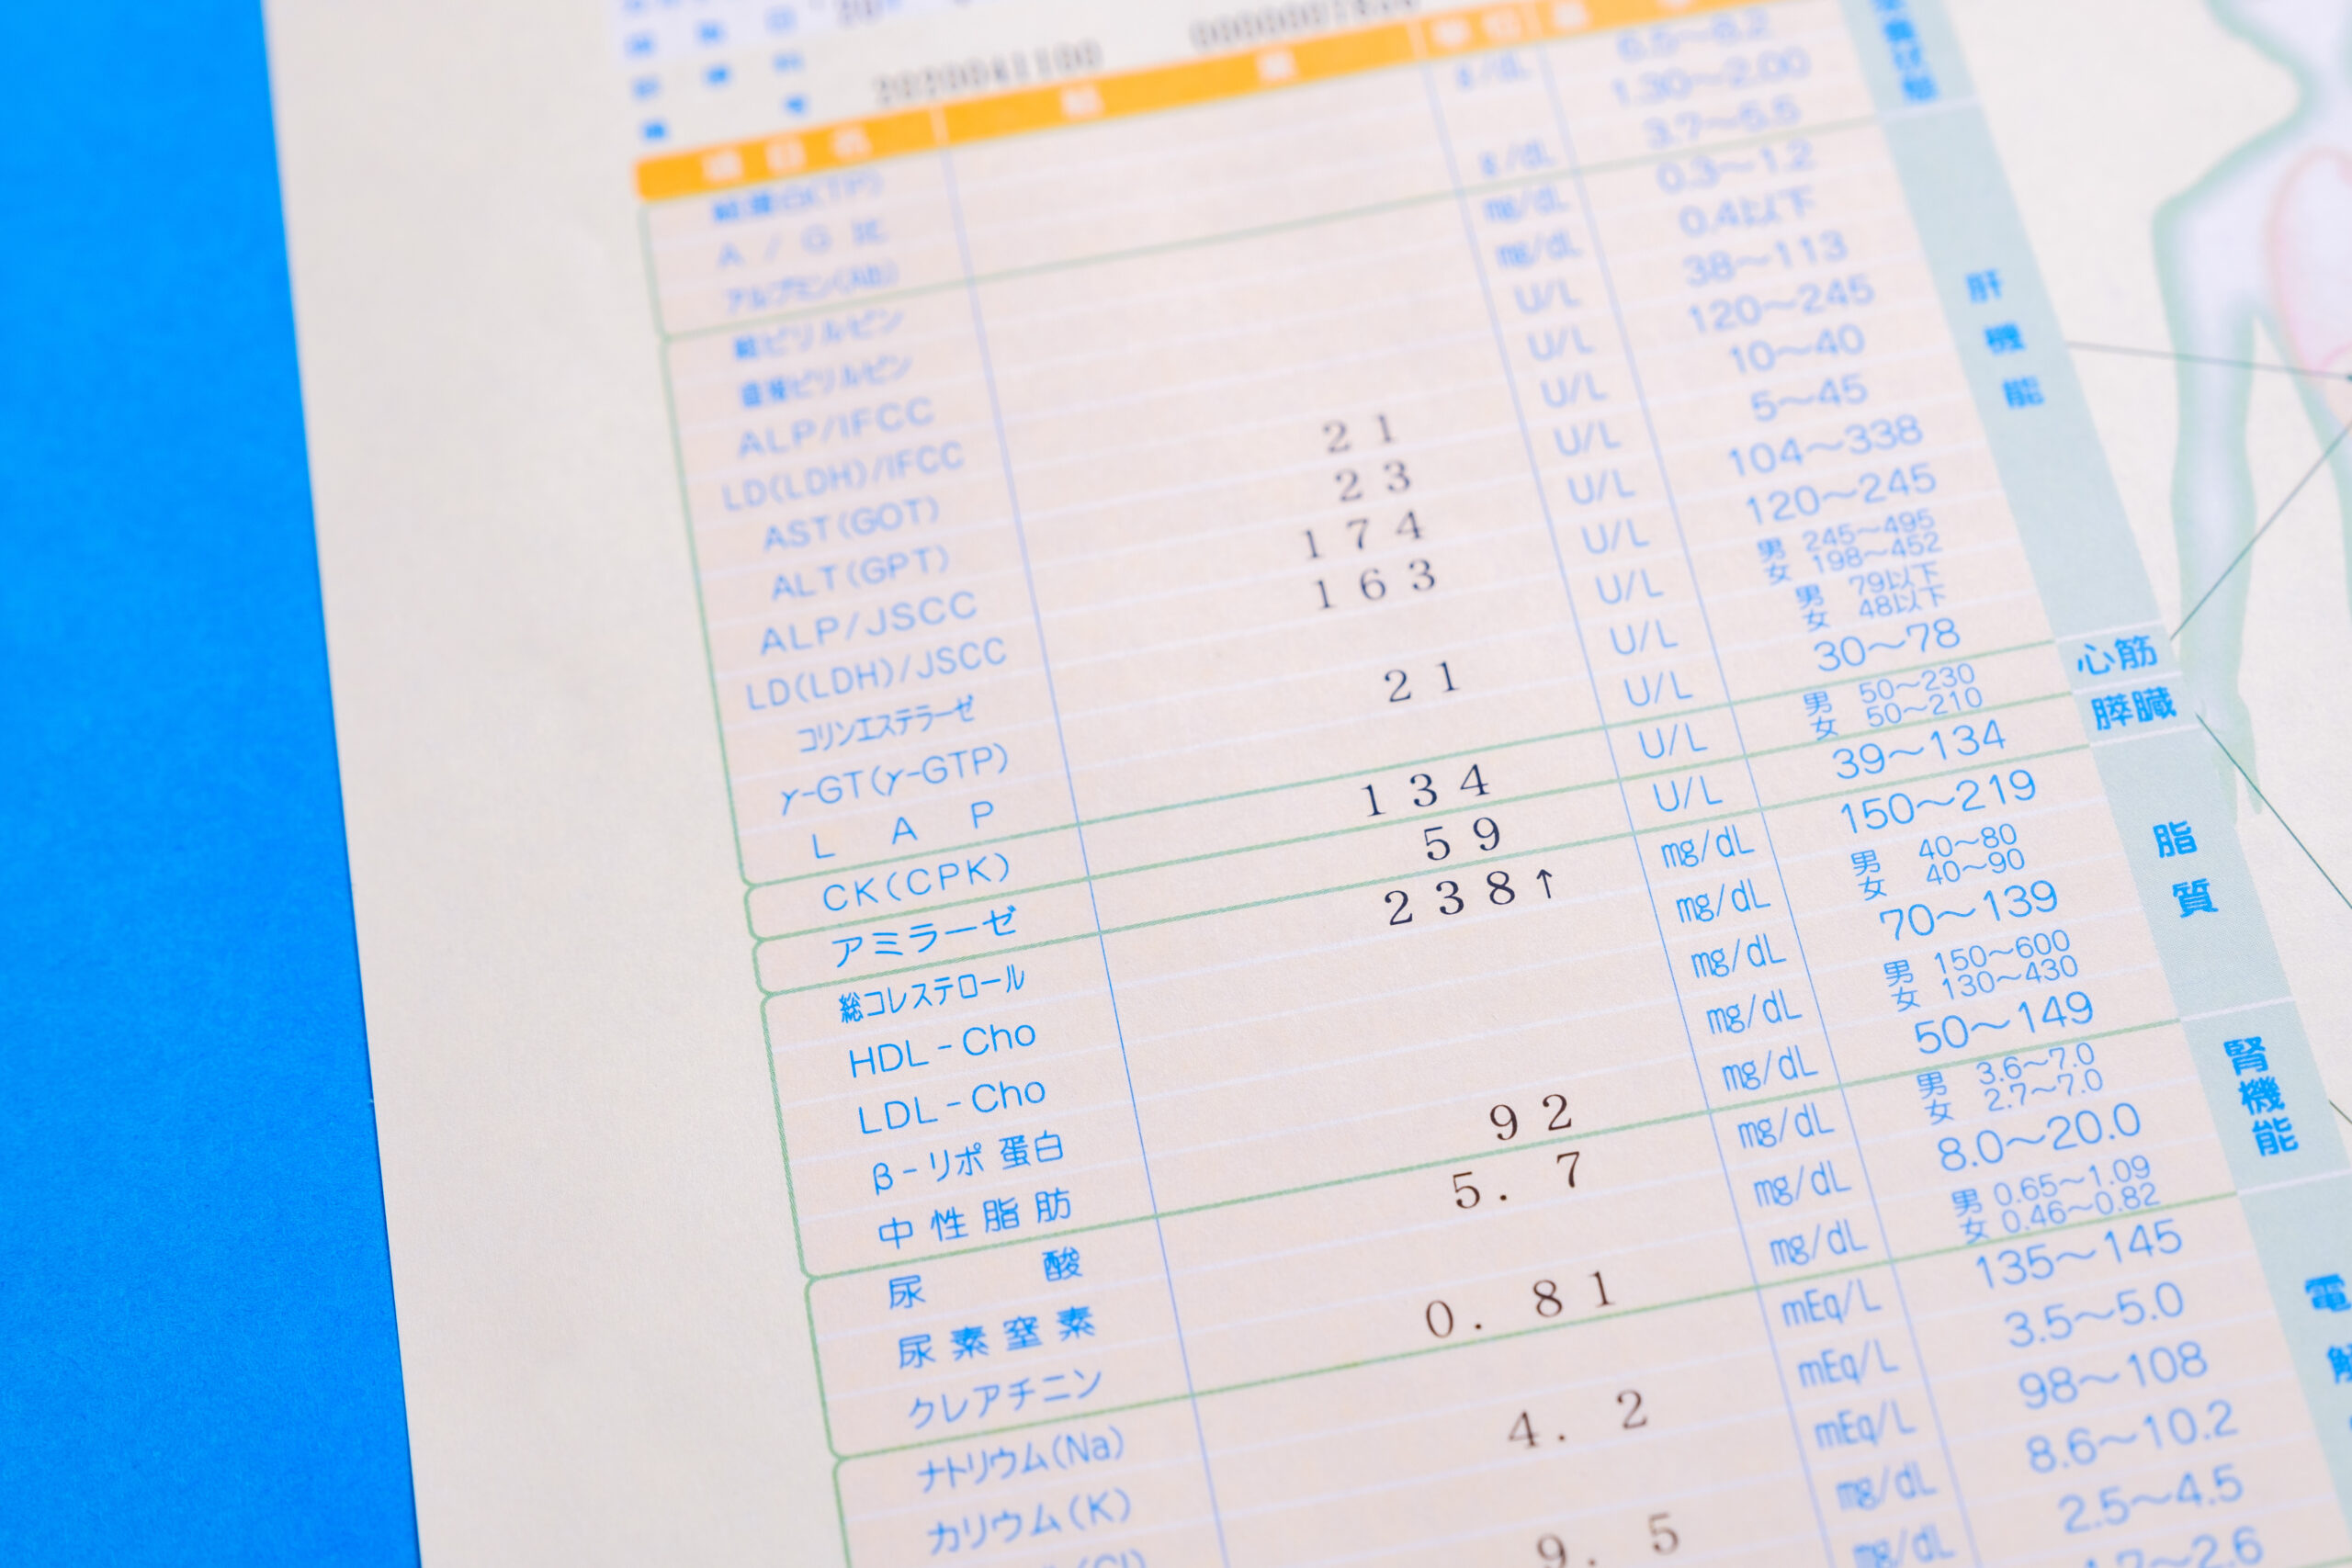 2020041100
項目名 結 果 単位
総蛋白(TP) g/dL 6.5～8.2
A / G 比 1.30～2.00
アルブミン(Alb) g/dL 3.7～5.5
総ビリルビン mg/dL 0.3～1.2
直接ビリルビン mg/dL 0.4以下
ALP/IFCC U/L 38～113
LD(LDH)/IFCC U/L 120～245
AST(GOT) 21 U/L 10～40
ALT(GPT) 23 U/L 5～45
ALP/JSCC 174 U/L 104～338
LD(LDH)/JSCC 163 U/L 120～245
コリンエステラーゼ U/L 男 245～495
女 198～452
γ-GT(γ-GTP) 21 U/L 男 79以下
女 48以下
L A P U/L 30～78
肝機能
CK(CPK) 134 U/L 男 50～230
女 50～210
心筋
アミラーゼ 59 U/L 39～134
膵臓
総コレステロール 238↑ mg/dL 150～219
HDL-Cho mg/dL 男 40～80
女 40～90
LDL-Cho mg/dL 70～139
β-リポ蛋白 mg/dL 男 150～600
女 130～430
中性脂肪 92 mg/dL 50～149
脂質
尿酸 5.7 mg/dL 男 3.6～7.0
女 2.7～7.0
尿素窒素 mg/dL 8.0～20.0
クレアチニン 0.81 mg/dL 男 0.65～1.09
女 0.46～0.82
腎機能
ナトリウム(Na) mEq/L 135～145
カリウム(K) 4.2 mEq/L 3.5～5.0
(Cl) mEq/L 98～108
9.5 mg/dL 8.6～10.2
mg/dL 2.5～4.5
1.7～2.6
電